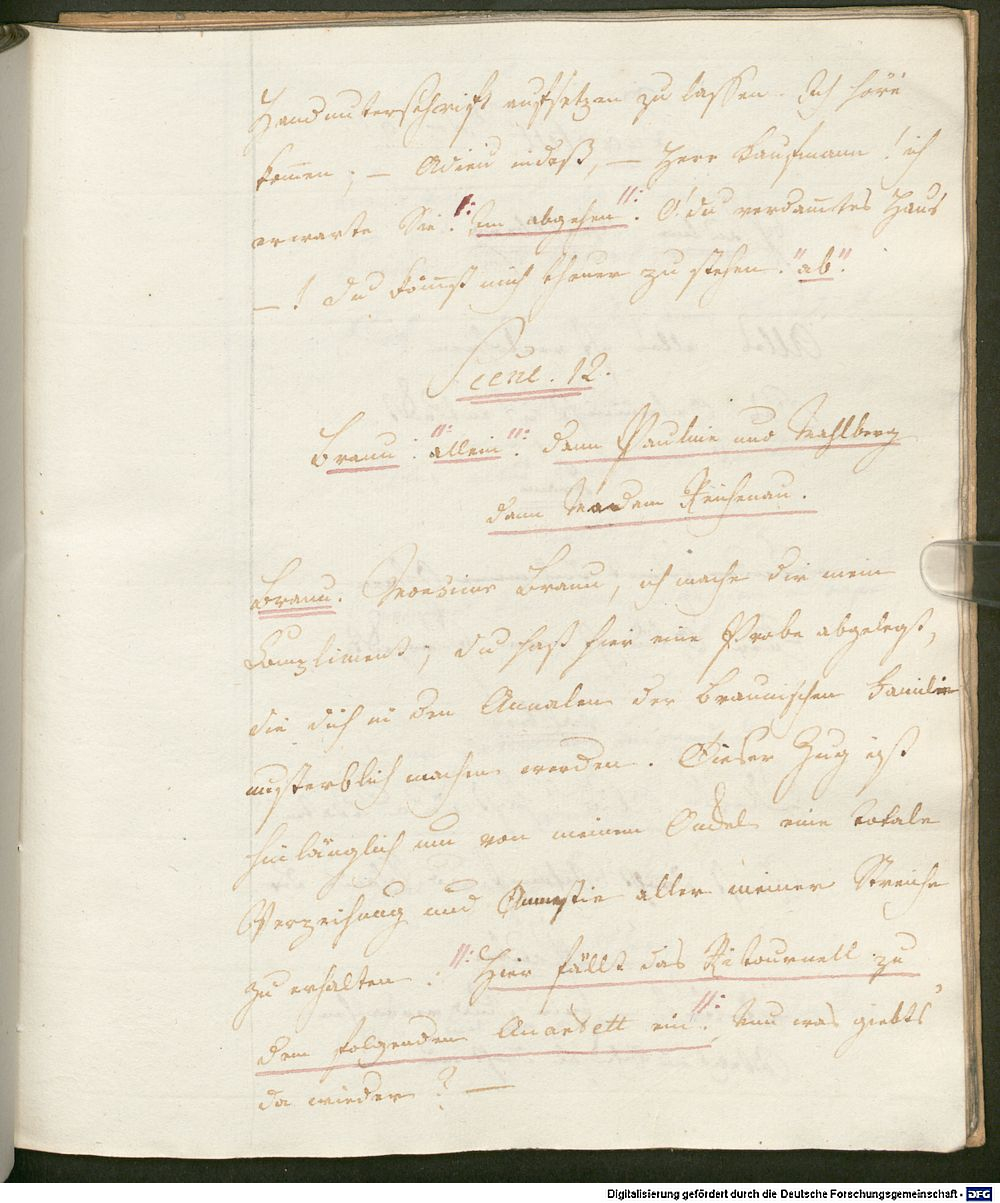 Handunterschrift aufsetzen zu lassen. Ich höre
kommen; — Adieu indeß, — Herr Kaufmann! ich
erwarte Sie. ": im abgehen :" O! du verdam̅tes Haus
—! du köm̅st mich theuer zu stehen. "ab".
Scene. 12.
Braun ": allein :" dann Pauline und Wahlberg
dann Madam Reichenau.
Braun. Monsieur Braun, ich mache dir mein
Compliment; du hast hier eine Probe abgelegt,
die dich in den Annalen der braunischen Familie
unsterblich machen werden. Dieser Zug ist
hinlänglich um von meinem Onkel eine totale
Verzeihung und Amnestie aller meiner Streiche
zu erhalten. ": Hier fällt das Ritournell zu
dem folgenden Quartett ein :" Nun was giebts
da wieder? —
Digitalisierung gefördert durch die Deutsche Forschungsgemeinschaft - DFG